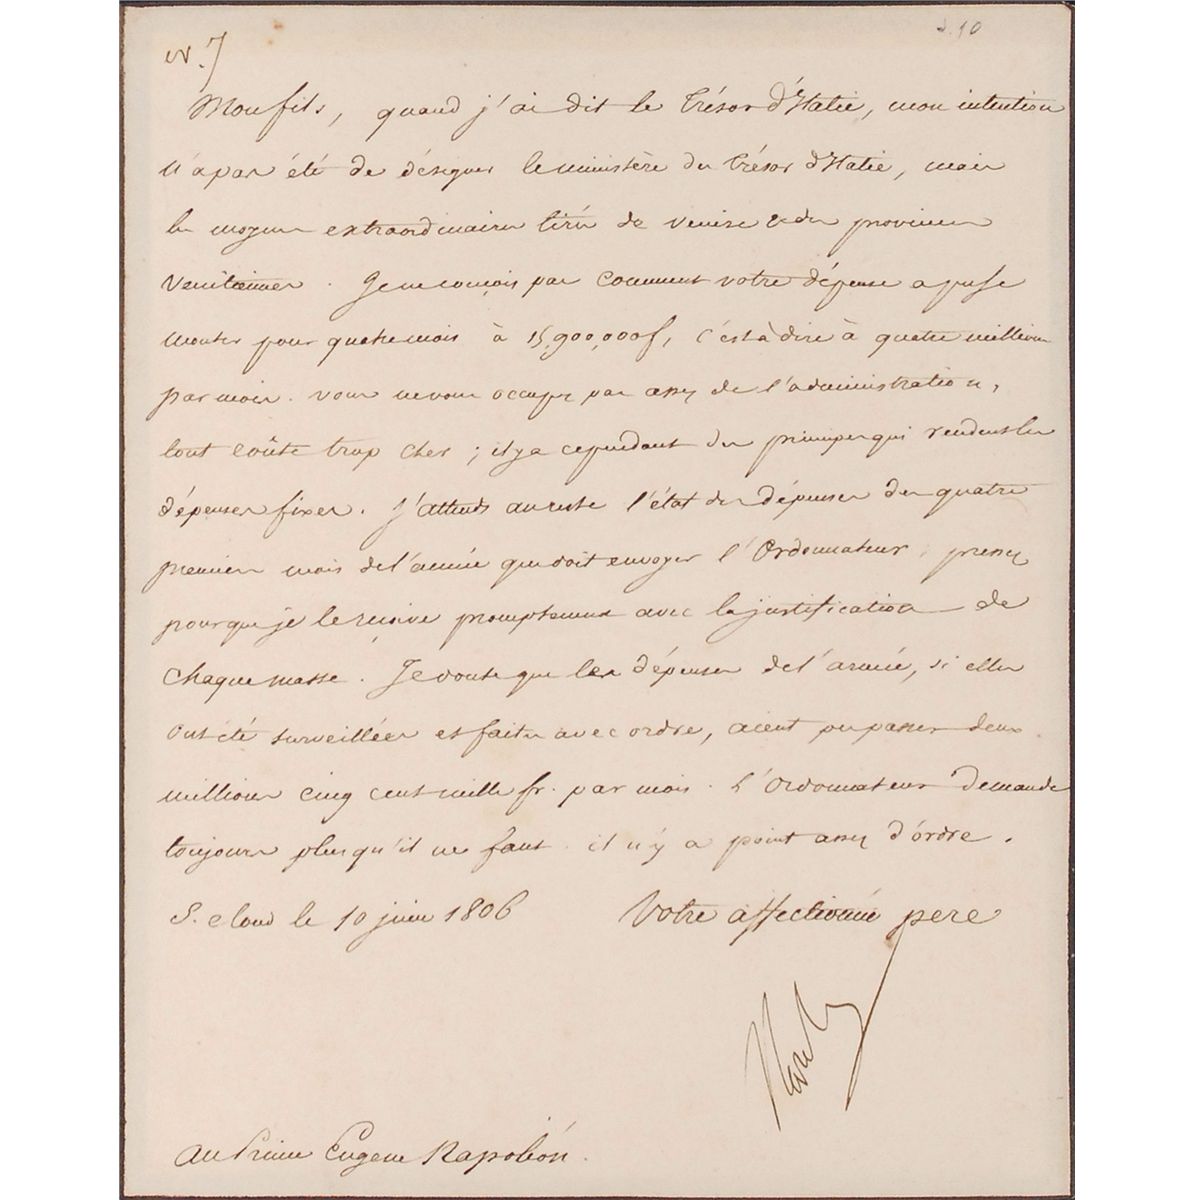 N. 7
d. 10
Mon fils, quand j'ai dit le trésor d'Italie, mon intention
n'a pas été de désigner le ministère du trésor d'Italie, mais
les moyens extraordinaires tirés de Venise & des provinces
Venitiennes. Je ne conçois pas comment votre dépense a pu se
monter pour quatre mois à 15,900,000 f, c'est à dire à quatre millions
par mois. vous ne vous occupez pas assez de l'administration,
tout coûte trop cher ; il y a cependant des principes qui rendent les
dépenses fixes. J'attends au reste l'état des dépenses des quatre
premiers mois de l'année que doit envoyer l'Ordonnateur ; pressez
pour que je le reçoive promptement avec la justification de
chaque masse. Je doute que les dépenses de l'armée, si elles
ont été surveillées et faites avec ordre, aient pu passer deux
millions cinq cent mille fr. par mois. L'Ordonnateur demande
toujours plus qu'il ne faut. il n'y a point assez d'ordre.
S. Cloud le 10 juin 1806
Votre affectionné pere
Au Prince Eugene Napoléon.